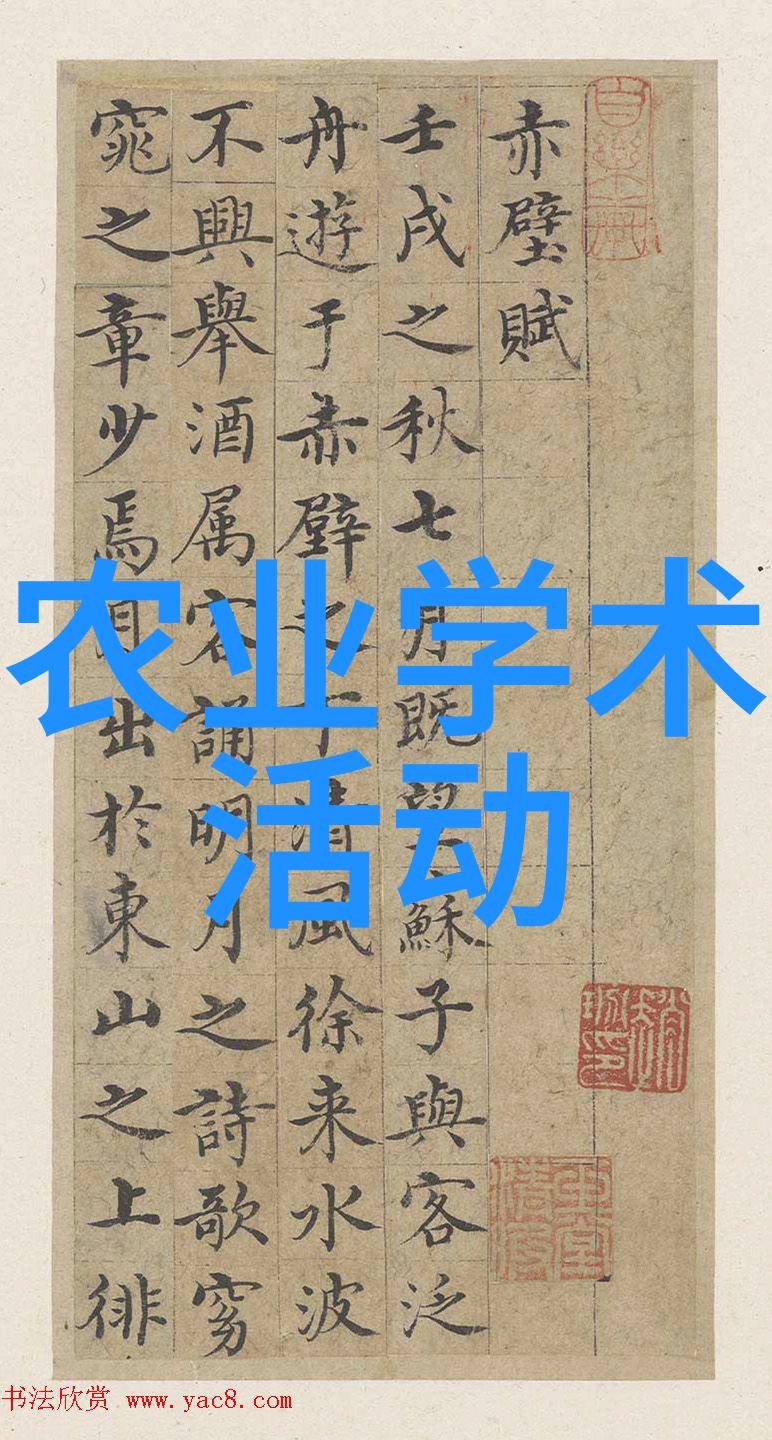 赤壁賦
壬戌之秋七月既望蘇子與客泛
舟遊于赤壁之下清風徐来水波
不興舉酒属客誦明月之詩歌窈
窕之章少焉月出於東山之上徘
农业学术
活动
书法欣赏 www.yac8.com